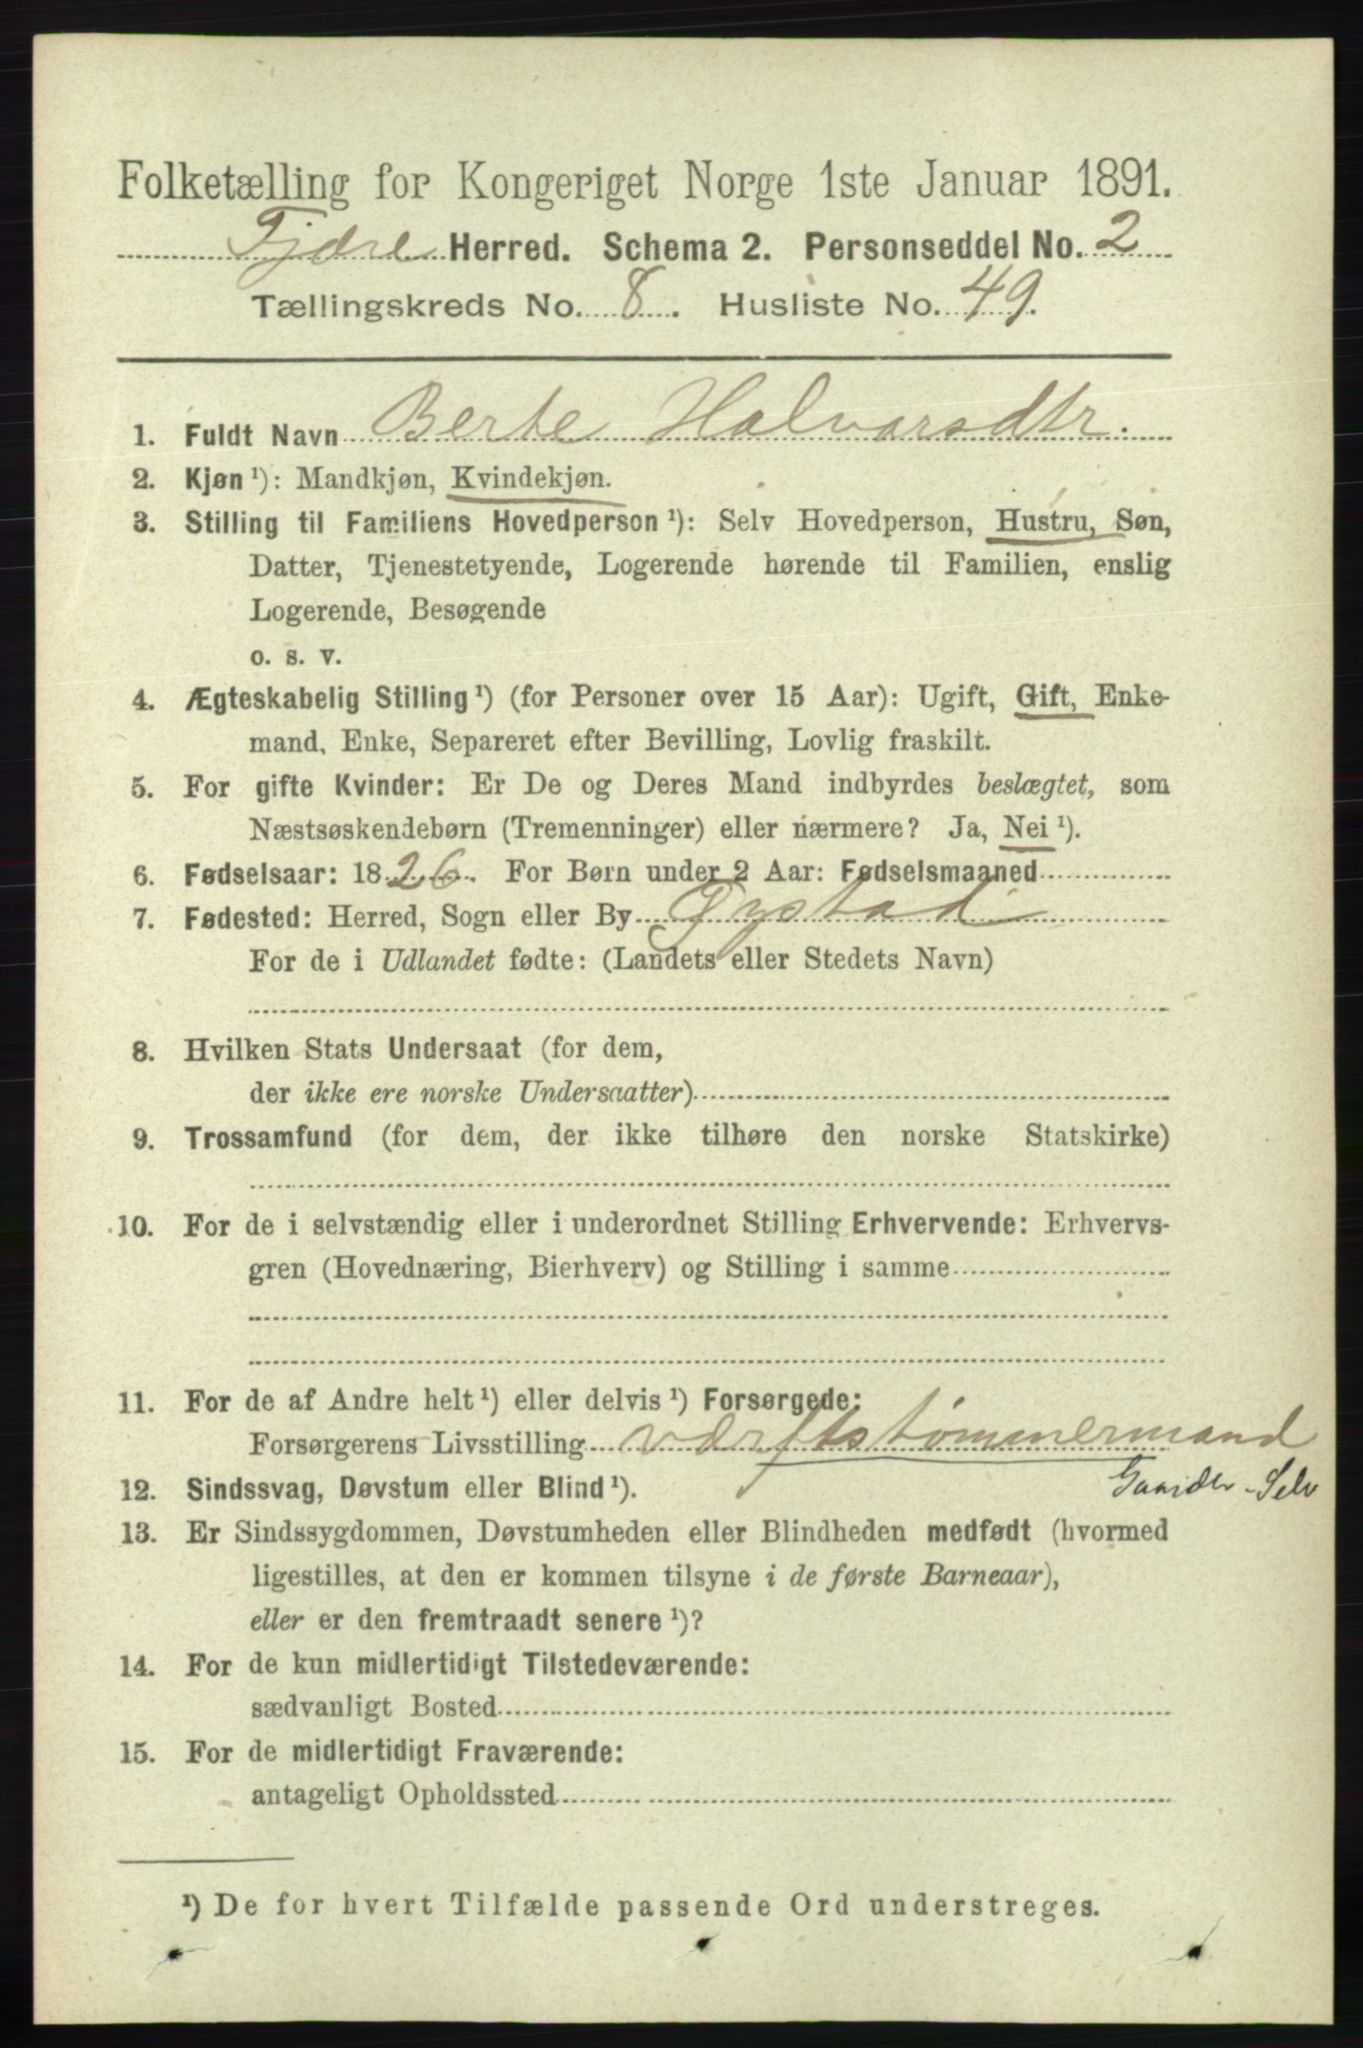 Folketælling for Kongeriget Norge 1ste Januar 1891.
Fjære Herred. Schema 2. Personseddel No. 2
Tællingskreds No. 8. Husliste No. 49.
1. Fuldt Navn Berte Halvorsdtr.
2. Kjøn ¹): Mandkjøn, Kvindekjøn.
3. Stilling til Familiens Hovedperson ¹): Selv Hovedperson, Hustru, Søn,
Datter, Tjenestetyende, Logerende hørende til Familien, enslig
Logerende, Besøgende
o. s. v.
4. Ægteskabelig Stilling ¹) (for Personer over 15 Aar): Ugift, Gift, Enke-
mand, Enke, Separeret efter Bevilling, Lovlig fraskilt.
5. For gifte Kvinder: Er De og Deres Mand indbyrdes beslægtet, som
Næstsøskendebørn (Tremenninger) eller nærmere? Ja, Nei ¹).
6. Fødselsaar: 1826. For Børn under 2 Aar: Fødselsmaaned
7. Fødested: Herred, Sogn eller By Øystad
For de i Udlandet fødte: (Landets eller Stedets Navn)
8. Hvilken Stats Undersaat (for dem,
der ikke ere norske Undersaatter)
9. Trossamfund (for dem, der ikke tilhøre den norske Statskirke)
10. For de i selvstændig eller i underordnet Stilling Erhvervende: Erhvervs-
gren (Hovednæring, Bierhverv) og Stilling i samme
11. For de af Andre helt ¹) eller delvis ¹) Forsørgede:
Forsørgerens Livsstilling værftstømmermand
12. Sindssvag, Døvstum eller Blind ¹). Gaarder - Selv
13. Er Sindssygdommen, Døvstumheden eller Blindheden medfødt (hvormed
ligestilles, at den er kommen tilsyne i de første Barneaar),
eller er den fremtraadt senere ¹)?
14. For de kun midlertidigt Tilstedeværende:
sædvanligt Bosted
15. For de midlertidigt Fraværende:
antageligt Opholdssted
¹) De for hvert Tilfælde passende Ord understreges.